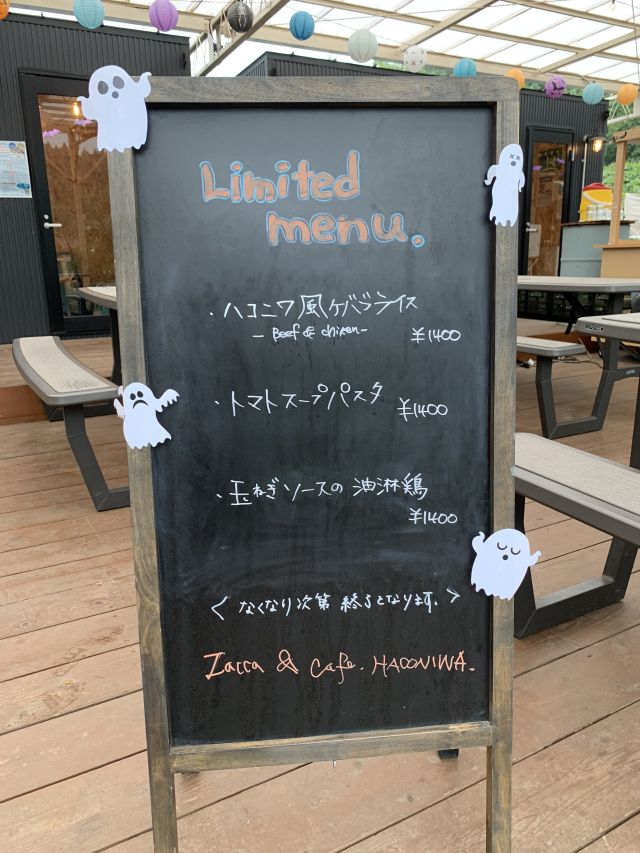 Limited
menu.
・ハコニワ風ケバブライス
- Beef & chiken -
¥1400
・トマトスープパスタ ¥1400
・玉ねぎソースの油淋鶏
¥1400
< なくなり次第 終了となります。 >
Zacca & Cafe. HACONIWA.